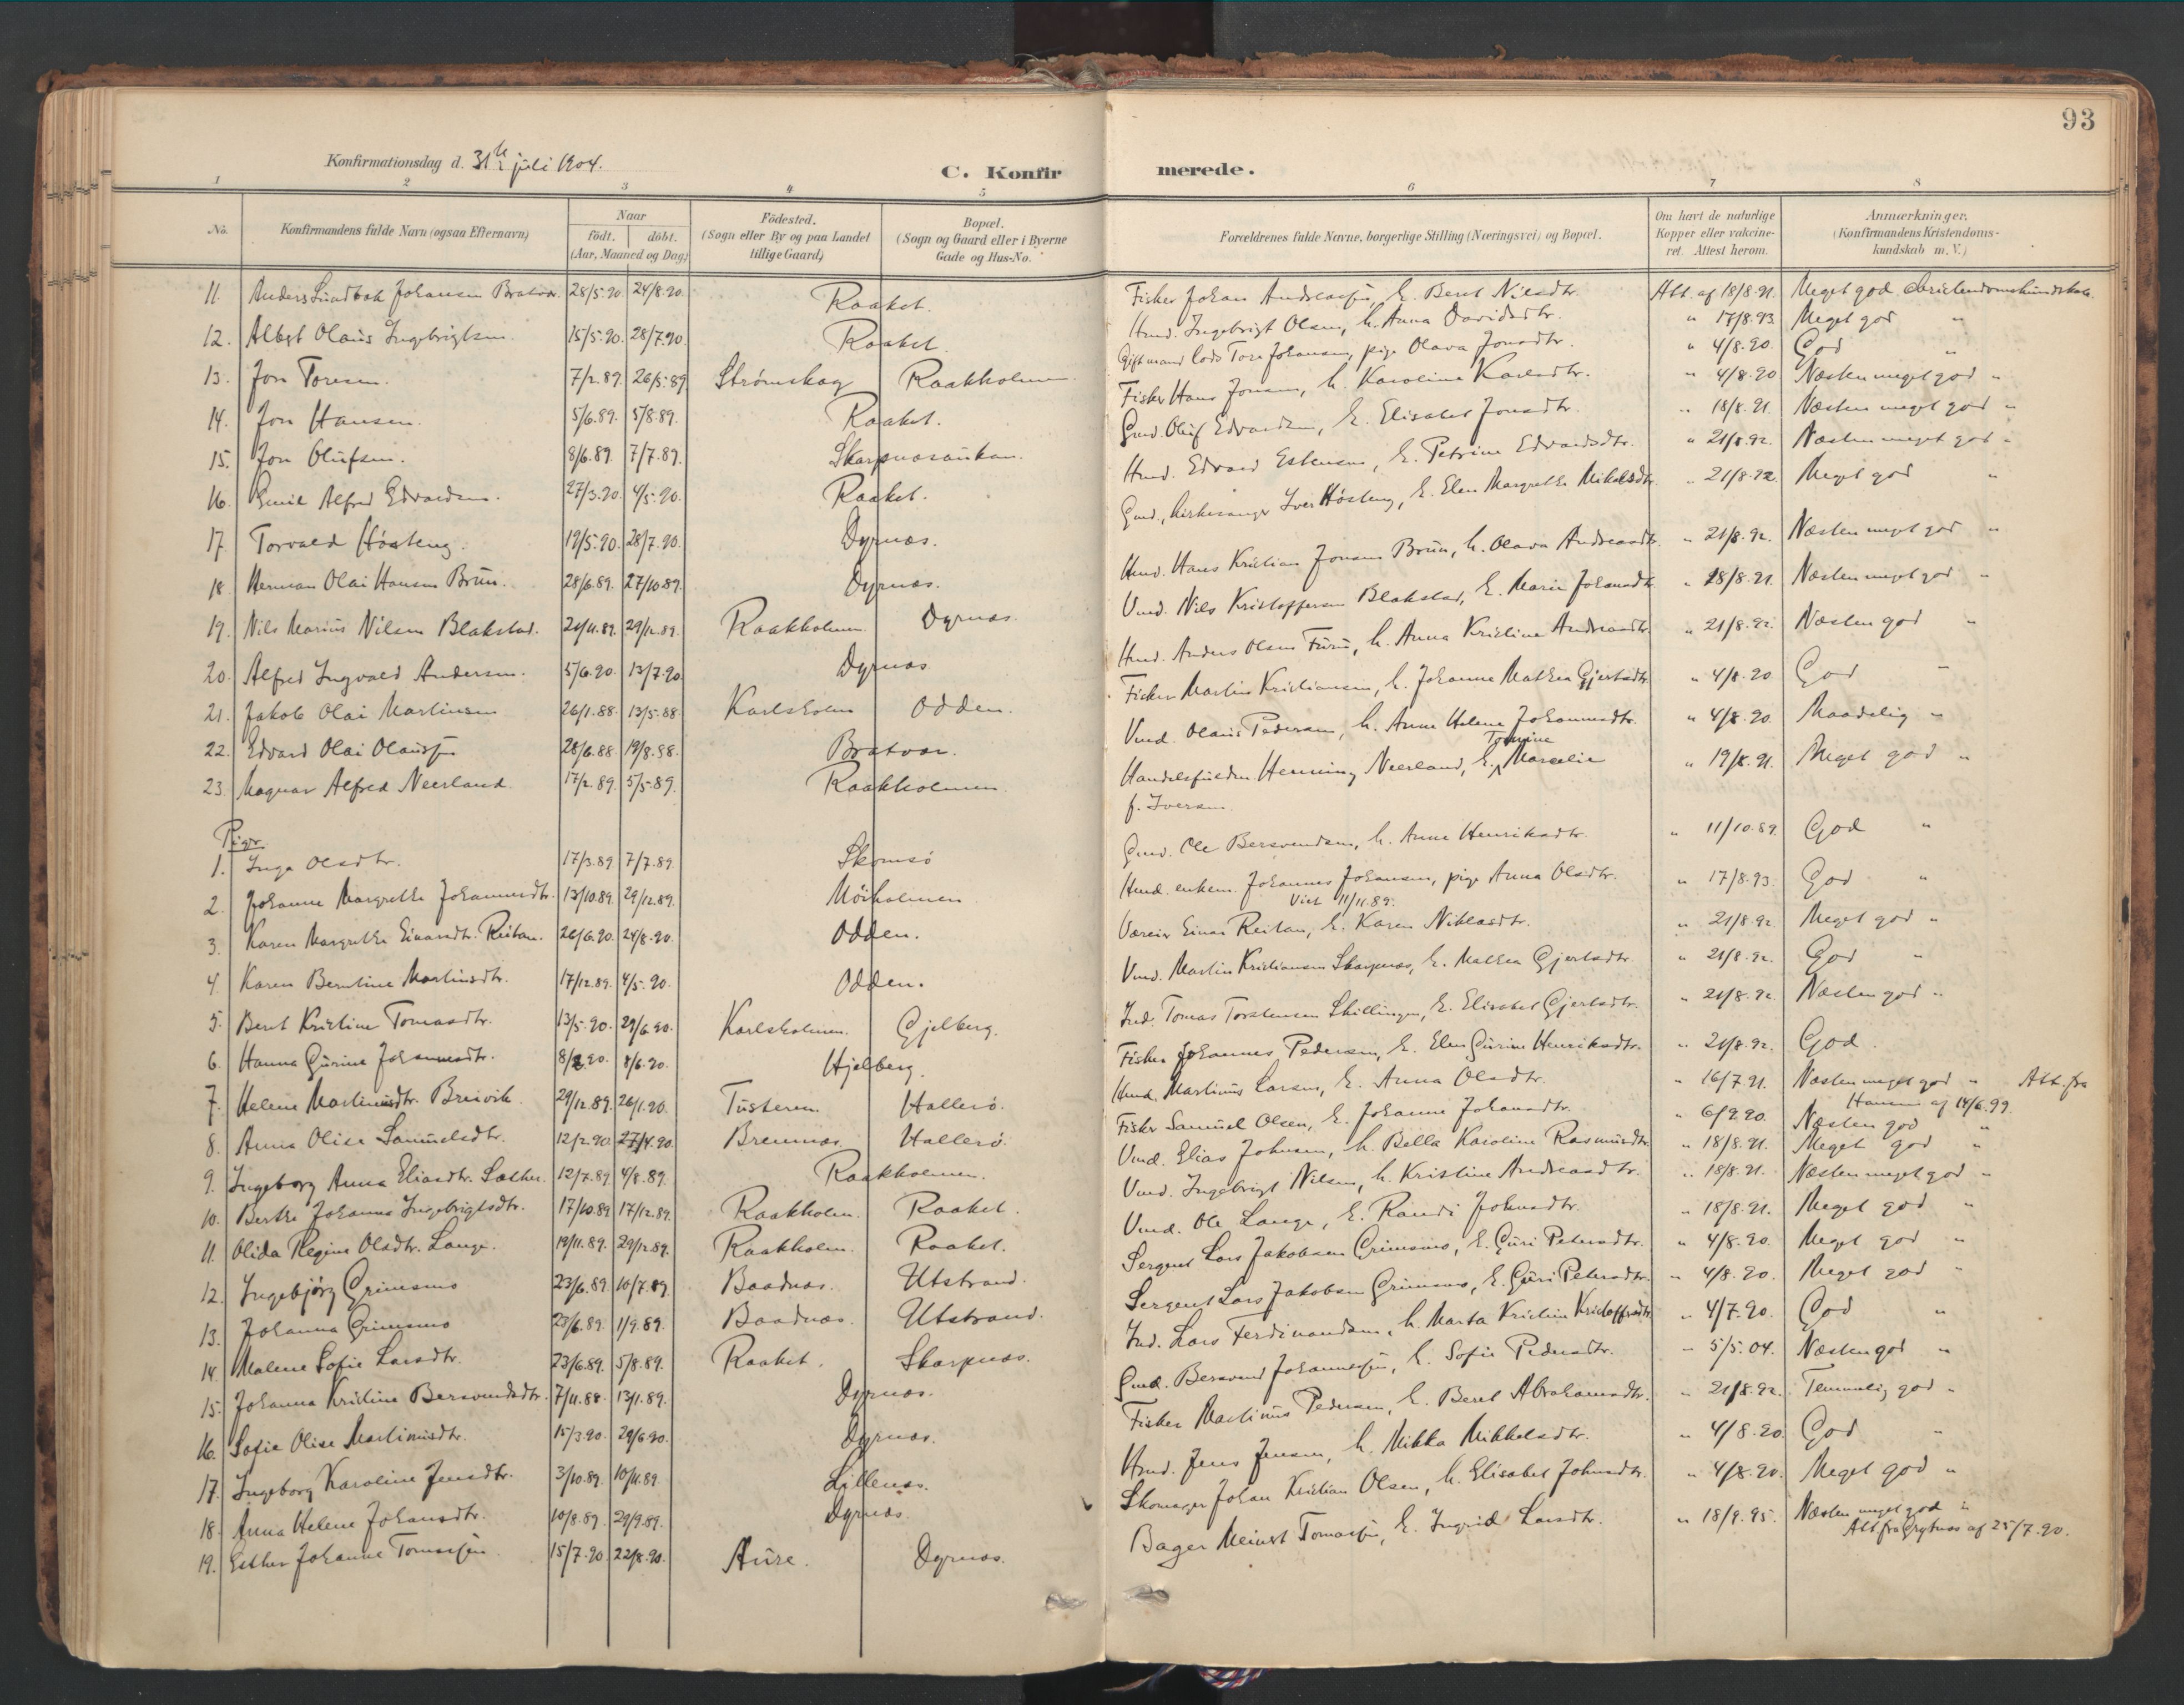 93
Konfirmationsdag d. 31te juli 1904.
C. Konfirmerede.
1 2 3 4 5 6 7 8
No.
Konfirmandens fulde Navn (ogsaa Efternavn)
Naar
födt. döbt.
(Aar, Maaned og Dag)
Födested.
(Sogn eller By og paa Landet
tillige Gaard)
Bopæl.
(Sogn og Gaard eller i Byerne
Gade og Hus-No.
Forældrenes fulde Navne, borgerlige Stilling (Næringsvei) og Bopæl.
Om havt de naturlige
Kopper eller vakcine-
ret. Attest herom.
Anmærkninger.
(Konfirmandens Kristendoms-
kundskab m. V.)
11. Anders Sundbak Johansen Bratvær. 28/5.90 24/8.90. Raaket. Fisker Johan Andreassen, h. Beret Nilsdtr. Att. af 18/8.91. Meget god christendomskundskab.
12. Albert Olaus Ingebrigtsen. 15/5.90. 28/7.90. Raaket. Hmd. Ingebrigt Olsen, h. Anna Davidsdtr. " 17/8.93. Meget god "
13. Jon Toresen. 7/2.89. 26/5.89 Strømskag Raakholmen Gift mand Lods Tore Johansen, pige Olava Jonsdtr. " 4/8.90. God "
14. Jon Hansen. 5/6.89. 5/8.89. Raaket. Fisker Hans Jonsen, h. Karoline Karlsdtr. " 4/8.90 Næsten meget god "
15. Jon Olufsen. 8/6.89. 7/7.89. Skarpnæsaukan. Gmd. Oluf Edvardsen, h. Elisabet Jonsdtr. " 18/8.91. Næsten meget god "
16. Emil Alfred Edvardsen. 27/3.90. 4/5.90. Raaket. Hmd. Edvard Estensen, h. Petrine Edvardsdtr. " 21/8.92. Næsten meget god "
17. Torvald Høsteng. 19/5.90. 28/7.90. Dyrnæs. Gmd., kirkesanger Iver Høsteng, h. Elen Margrethe Mikalsdtr. " 21/8.92 Meget god "
18. Herman Olai Hansen Brun. 28/6.89. 27/10.89. Dyrnæs. Hmd. Hans Kristian Jonsen Brun, h. Olava Andreasdtr. " 21/8.92. Næsten meget god "
19. Nils Marius Nilsen Blakstad. 21/11.89. 29/12.89. Raakholmen. Dyrnæs. Vmd. Nils Kristoffersen Blakstad, h. Marie Johansdtr. " 18/8.91. Næsten meget god "
20. Alfred Ingvald Andersen. 5/6.90. 13/7.90 Dyrnæs Hmd. Anders Olsen Furu, h. Anna Kristine Andreasdtr. " 21/8.92. Næsten god "
21. Jakob Olai Martinsen 26/1.88. 13/5.88. Karlsholm Odden. Fisker Martin Kristiansen, h. Johanne Mathea Gjertsdtr. " 4/8.90 God "
22. Edvard Olai Olaussen 28/6.88 19/8.88. Bratvær. Vmd. Olaus Pedersen, h. Anne Helene Johannesdtr. " 4/8.90. Maadelig "
23. Magnar Alfred Neerland. 17/2.89. 5/5.89. Raakholmen. Handelsfuldm. Henning Neerland, h. Tomine Marcelie " 19/8.91. Meget god "
f. Iversen.
Piger.
1. Inga Olsdtr. 17/3.89. 7/7.89. Skomsø Gmd. Ole Bersvendsen, h. Anne Henriksdtr. " 11/10.89. God "
2. Johanne Margrethe Johannesdtr. 13/10.89. 29/12.89. Møiholmen Hmd. enkem. Johannes Johansen, pige Anna Olsdtr. " 17/8.93. God "
Viet 11/11.89.
3. Karen Margrethe Einarsdtr. Reitan. 26/6.90. 24/8.90. Odden. Væreier Einar Reitan, h. Karen Niklasdtr. " 21/8.92 Meget god "
4. Karen Berntine Martinsdtr. 17/12.89. 4/5.90. Odden. Vmd. Martin Kristiansen Skarpnæs, h. Mathea Gjertsdtr. " 21/8.92. God "
5. Beret Kristine Tomasdtr. 13/5.90. 29/6.90. Karlsholmen. Gjelberg. Ind. Tomas Torstensen Skillingen, h. Elisabet Gjertsdtr. " 21/8.92. Næsten god "
6. Hanna Gurine Johannesdtr. 8/2.90. 8/6.90. Hjelberg. Fisker Johannes Pedersen, h. Elen Gurine Henriksdtr. " 21/8.92. God.
7. Helene Martinusdtr. Breivik. 29/12.89. 26/1.90. Tusteren. Hallerø. Hmd. Martinus Larsen, h. Anna Olsdtr. " 16/7.91. Næsten meget god " Att. fra
Hansen af 14/6.99.
8. Anna Olise Samuelsdtr. 12/2.90. 27/4.90. Bremnæs. Hallerø. Fisker Samuel Olsen, h. Johanne Johansdtr. " 6/9.90. Næsten god "
9. Ingeborg Anna Eliasdtr. Sæther. 12/7.89. 4/8.89. Raakholmen. Vmd. Elias Johnsen, h. Bella Karoline Rasmusdtr. " 18/8.91. Meget god "
10. Berthe Johanna Ingebrigtsdtr. 17/10.89 17/12.89. Raakholm. Raaket. Vmd. Ingebrigt Nilsen, h. Kristine Andreasdtr. " 18/8.91. Næsten meget god "
11. Olida Regine Olsdtr. Lange. 19/11.89. 29/12.89. Raakholm. Raaket. Vmd. Ole Lange, h. Randi Johnsdtr. " 18/8.91. Meget god "
12. Ingebjørg Grimsmo 23/6.89. 10/7.89 Baadnæs. Utstrand. Sergent Lars Jakobsen Grimsmo, h. Guri Petersdtr. " 4/8.90. Meget god "
13. Johanna Grimsmo 23/6.89. 1/9.89. Baadnæs. Utstrand. Sergent Lars Jakobsen Grimsmo, h. Guri Petersdtr. " 4/8.90. Meget god "
14. Malene Sofie Larsdtr. 23/6.89. 5/8.89. Raaket. Skarpnæs. Ind. Lars Ferdinandsen, h. Marta Kristine Kristoffersdtr. " 4/7.90. God "
15. Johanna Kristine Bersvendsdtr. 7/11.88. 13/1.89. Dyrnæs. Gmd. Bersvend Johannessen, h. Sofie Pedersdtr. " 5/5.04. Næsten god "
16. Sofie Olise Martinusdtr. 15/3.90. 29/6.90. Dyrnæs. Fisker Martinus Pedersen, h. Beret Abrahamsdtr. " 21/8.92. Temmelig god "
17. Ingeborg Karoline Jensdtr. 3/10.89. 10/11.89. Lillenæs. Hmd. Jens Jensen, h. Mikka Mikkelsdtr. " 4/8.90. God "
18. Anna Helene Johansdtr. 10/8.89. 29/9.89. Dyrnæs. Skomager Johan Kristian Olsen, h. Elisabet Johnsdtr. " 4/8.90. Meget god "
19. Esther Johanne Tomassen 15/7.90. 22/8.90. Aure. Dyrnæs. Bager Meinert Tomassen, h. Ingrid Larsdtr. " 18/9.95. Næsten meget god "
Att. fra Grytnæs af 25/7.90.